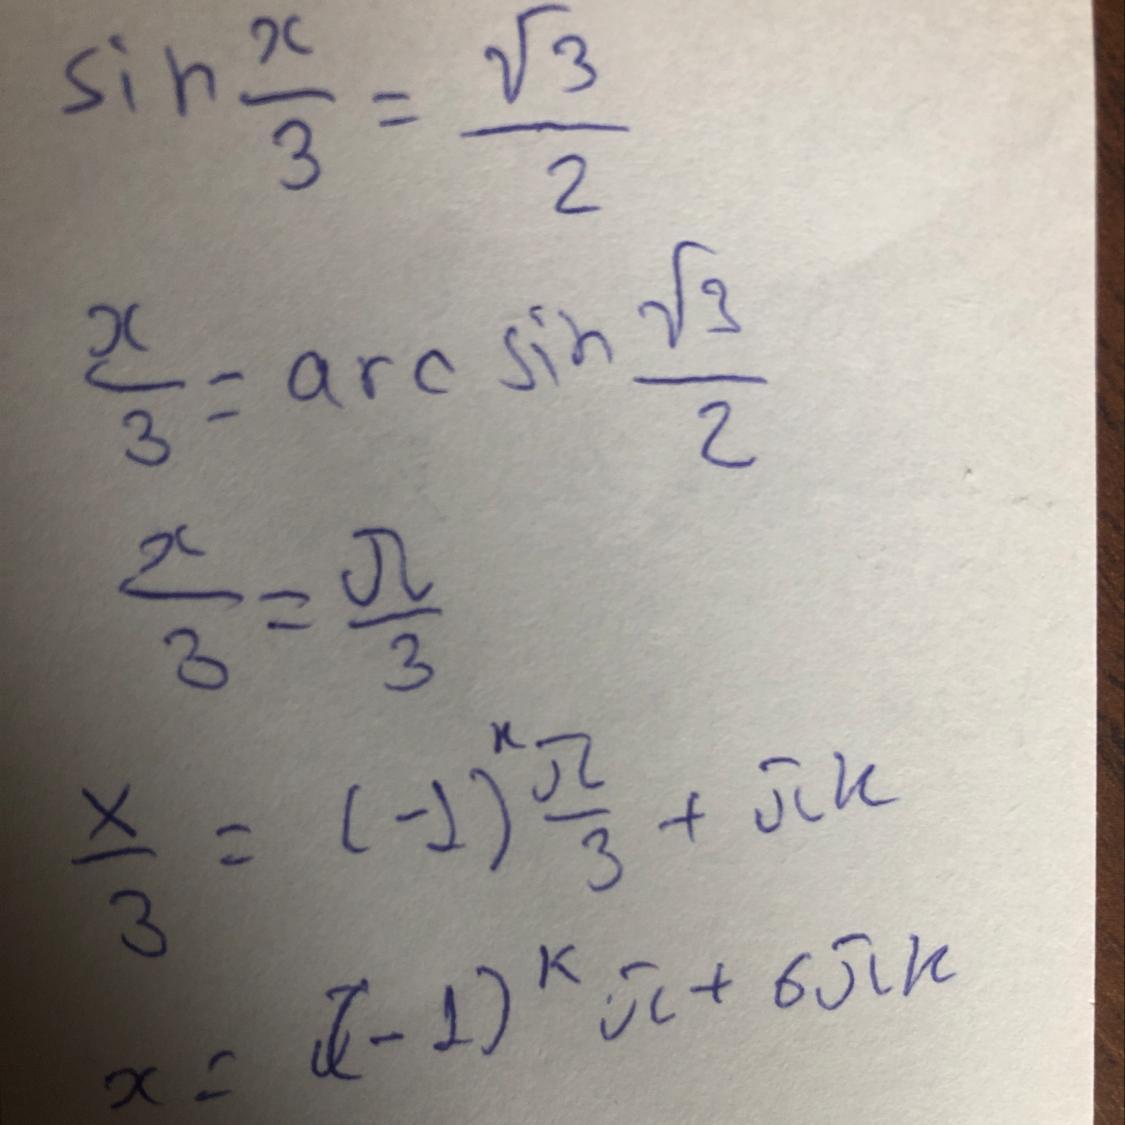 sin x/3 = √3/2
x/3 = arc sin √3/2
x/3 = π/3
x/3 = (-1)^k π/3 + πk
x = (-1)^k π + 6πk